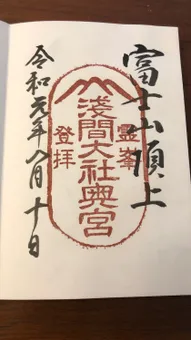 富士山頂上
霊峯
浅間大社奥宮
登拝
令和元年八月十日